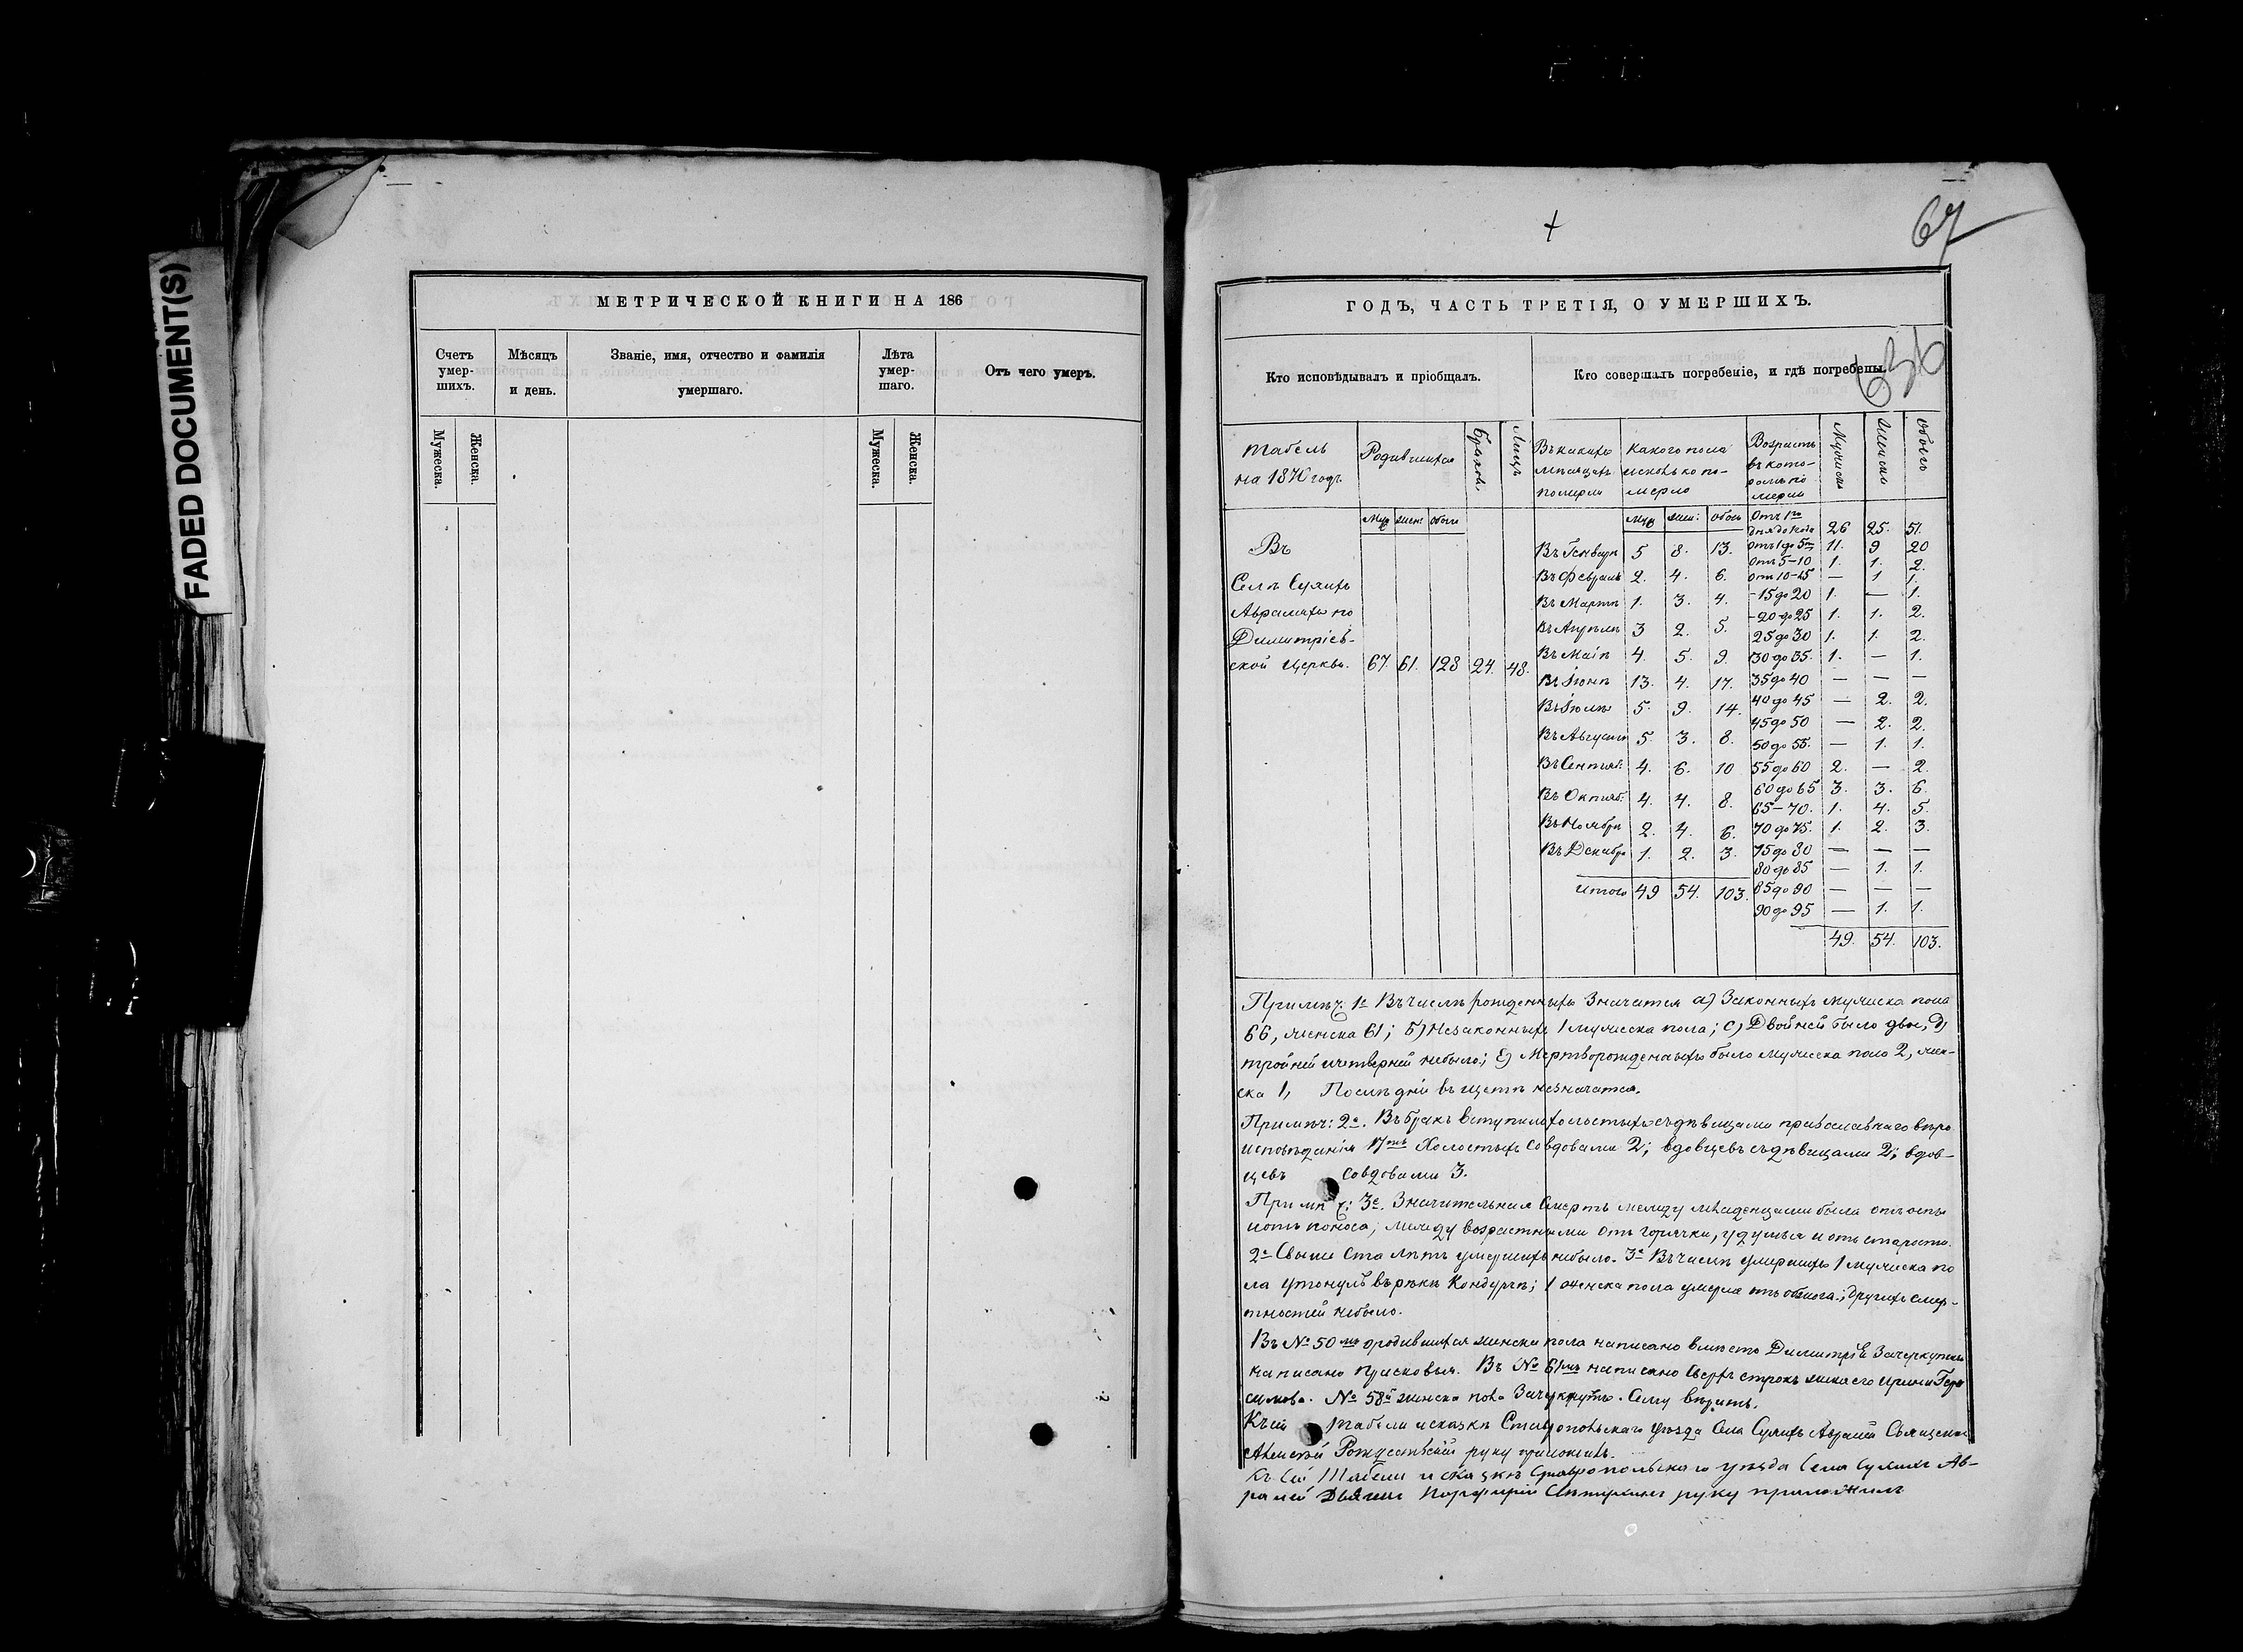 FADED DOCUMENT(S)
МЕТРИЧЕСКОЙ КНИГИ НА 186
Счетъ умер-шихъ.
Мѣсяцъ и день.
Званіе, имя, отчество и фамилія умершаго.
Лѣта умер-шаго.
Отъ чего умеръ.
Мужеска.
Женска.
Мужеска.
Женска.
67
ГОДЪ, ЧАСТЬ ТРЕТІЯ, О УМЕРШИХЪ.
Кто исповѣдывалъ и пріобщалъ.
Кто совершалъ погребеніе, и гдѣ погребены.
636
Табель на 1870 годъ
Родившихся
Браковъ
Лицъ
Въ какихъ мѣсяцахъ померли
Какого пола и сколько по-мерло
Возрастъ въ кото-ромъ по мерли
Мужска
Женска
Обоего
Муж Жен: Обоего
Муж Жен: Обоего
Въ
Селѣ Сухихъ
Авраляхъ по
Димитріев-
ской Церкви. 67. 61. 128 24. 48.
Въ Генварѣ 5 8. 13.
Въ Февралѣ 2. 4. 6.
Въ Мартѣ 1. 3. 4.
Въ Апрѣлѣ 3 2. 5.
Въ Маіѣ 4. 5. 9.
Въ Іюнѣ 13. 4. 17.
Въ Іюлѣ 5. 9. 14.
Въ Августѣ 5. 3. 8.
Въ Сентяб: 4. 6. 10
Въ Октяб: 4. 4. 8.
Въ Ноябрѣ 2. 4. 6.
Въ Декабрѣ 1. 2. 3.
Итого 49 54. 103.
Отъ 1го дня до года 26 25. 51.
Отъ 1 до 5ти 11. 9 20
Отъ 5-10 1. 1. 2.
Отъ 10-15 — 1 1.
-15 до 20 1. — 1.
-20 до 25 1. 1. 2.
25 до 30 1. 1. 2.
30 до 35. 1. — 1.
35 до 40 — — —
40 до 45 — 2. 2.
45 до 50 — 2. 2.
50 до 55. — 1. 1.
55 до 60 2. — 2.
60 до 65 3. 3. 6.
65-70. 1. 4. 5.
70 до 75. 1. 2. 3.
75 до 80 — — —
80 до 85 — 1. 1.
85 до 90 — — —
90 до 95 — 1. 1.
49. 54. 103.
Примѣч: 1е Въ числѣ рожденныхъ значатся а) Законныхъ мужеска пола
66, женска 61; б) Незаконныхъ 1 мужеска пола; с) Двойней было двое; д)
тройней и четверней небыло; е) Мертворожденныхъ было мужеска пола 2, жен-
ска 1, Послѣдніе въ щетѣ незначатся.
Примѣч: 2е. Въ бракъ вступило холостыхъ съ дѣвицами православнаго вѣро
исповѣданія 17ть Холостыхъ со вдовами 2; вдовцевъ съ дѣвицами 2; вдов-
цевъ со вдовами 3.
Примѣч: 3е. Значительная смерть между младенцами была отъ оспы
и отъ поноса; между возрастными отъ горячки, удушья и отъ старости.
2е Свыше ста лѣтъ умершихъ небыло. 3е Въ числѣ умершихъ 1 мужеска по
ла утонулъ въ рѣкѣ Кондурчѣ; 1 женска пола умерла отъ ; других смер-
тностей небыло.
Въ № 50мъ о родившихся женска пола написано вмѣсто Димитрій Зачеркнуто
написано Прасковья. Въ № 61мъ написано сверхъ строкъ
№ 58й женска пола Зачеркнутъ. Сему вѣрить.
Къ сей табели и сказкѣ Ставропольскаго уѣзда Села Сухихъ Авралей Священникъ
Алексѣй Рождественскій руку приложилъ.
Къ сей Табели и сказкѣ Ставропольскаго уѣзда Села Сухихъ Ав-
ралей Дьячекъ Порфирій руку приложилъ